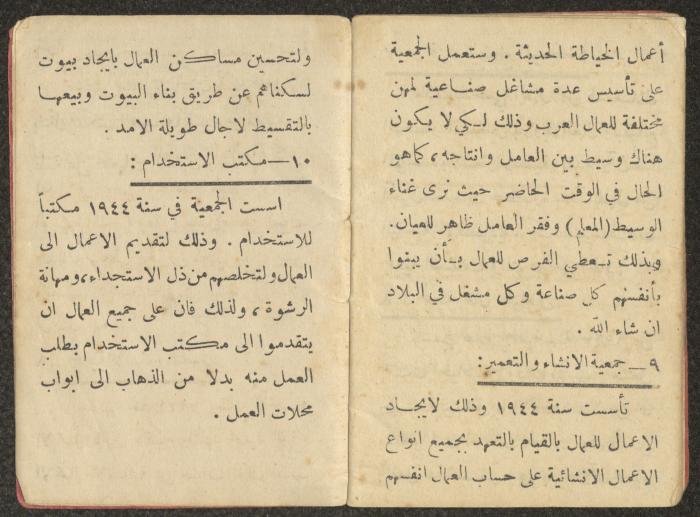 أعمال الخياطة الحديثة . وستعمل الجمعية
على تأسيس عدة مشاغل صناعية لمهن
مختلفة للعمال العرب وذلك لكي لا يكون
هناك وسيط بين العامل وانتاجه ، كما هو
الحال في الوقت الحاضر حيث نرى غناء
الوسيط (المعلم) وفقر العامل ظاهر للعيان.
وبذلك تعطي الفرص للعمال بأن يبنوا
بأنفسهم كل صناعة وكل مشغل في البلاد
ان شاء الله .
٩ــ جمعية الانشاء والتعمير:
تأسست سنة ١٩٤٤ وذلك لايجاد
الاعمال للعمال بالقيام بالتعهد بجميع انواع
الاعمال الانشائية على حساب العمال انفسهم
ولتحسين مساكن العمال بايجاد بيوت
لسكناهم عن طريق بناء البيوت وبيعها
بالتقسيط لاجال طويلة الامد .
١٠ــ مكتب الاستخدام :
اسست الجمعية في سنة ١٩٤٤ مكتباً
للاستخدام . وذلك لتقديم الاعمال الى
العمال ولتخلصهم من ذل الاستجداء ، ومهانة
الرشوة ، ولذلك فان على جميع العمال ان
يتقدموا الى مكتب الاستخدام بطلب
العمل منه بدلا من الذهاب الى ابواب
محلات العمل .